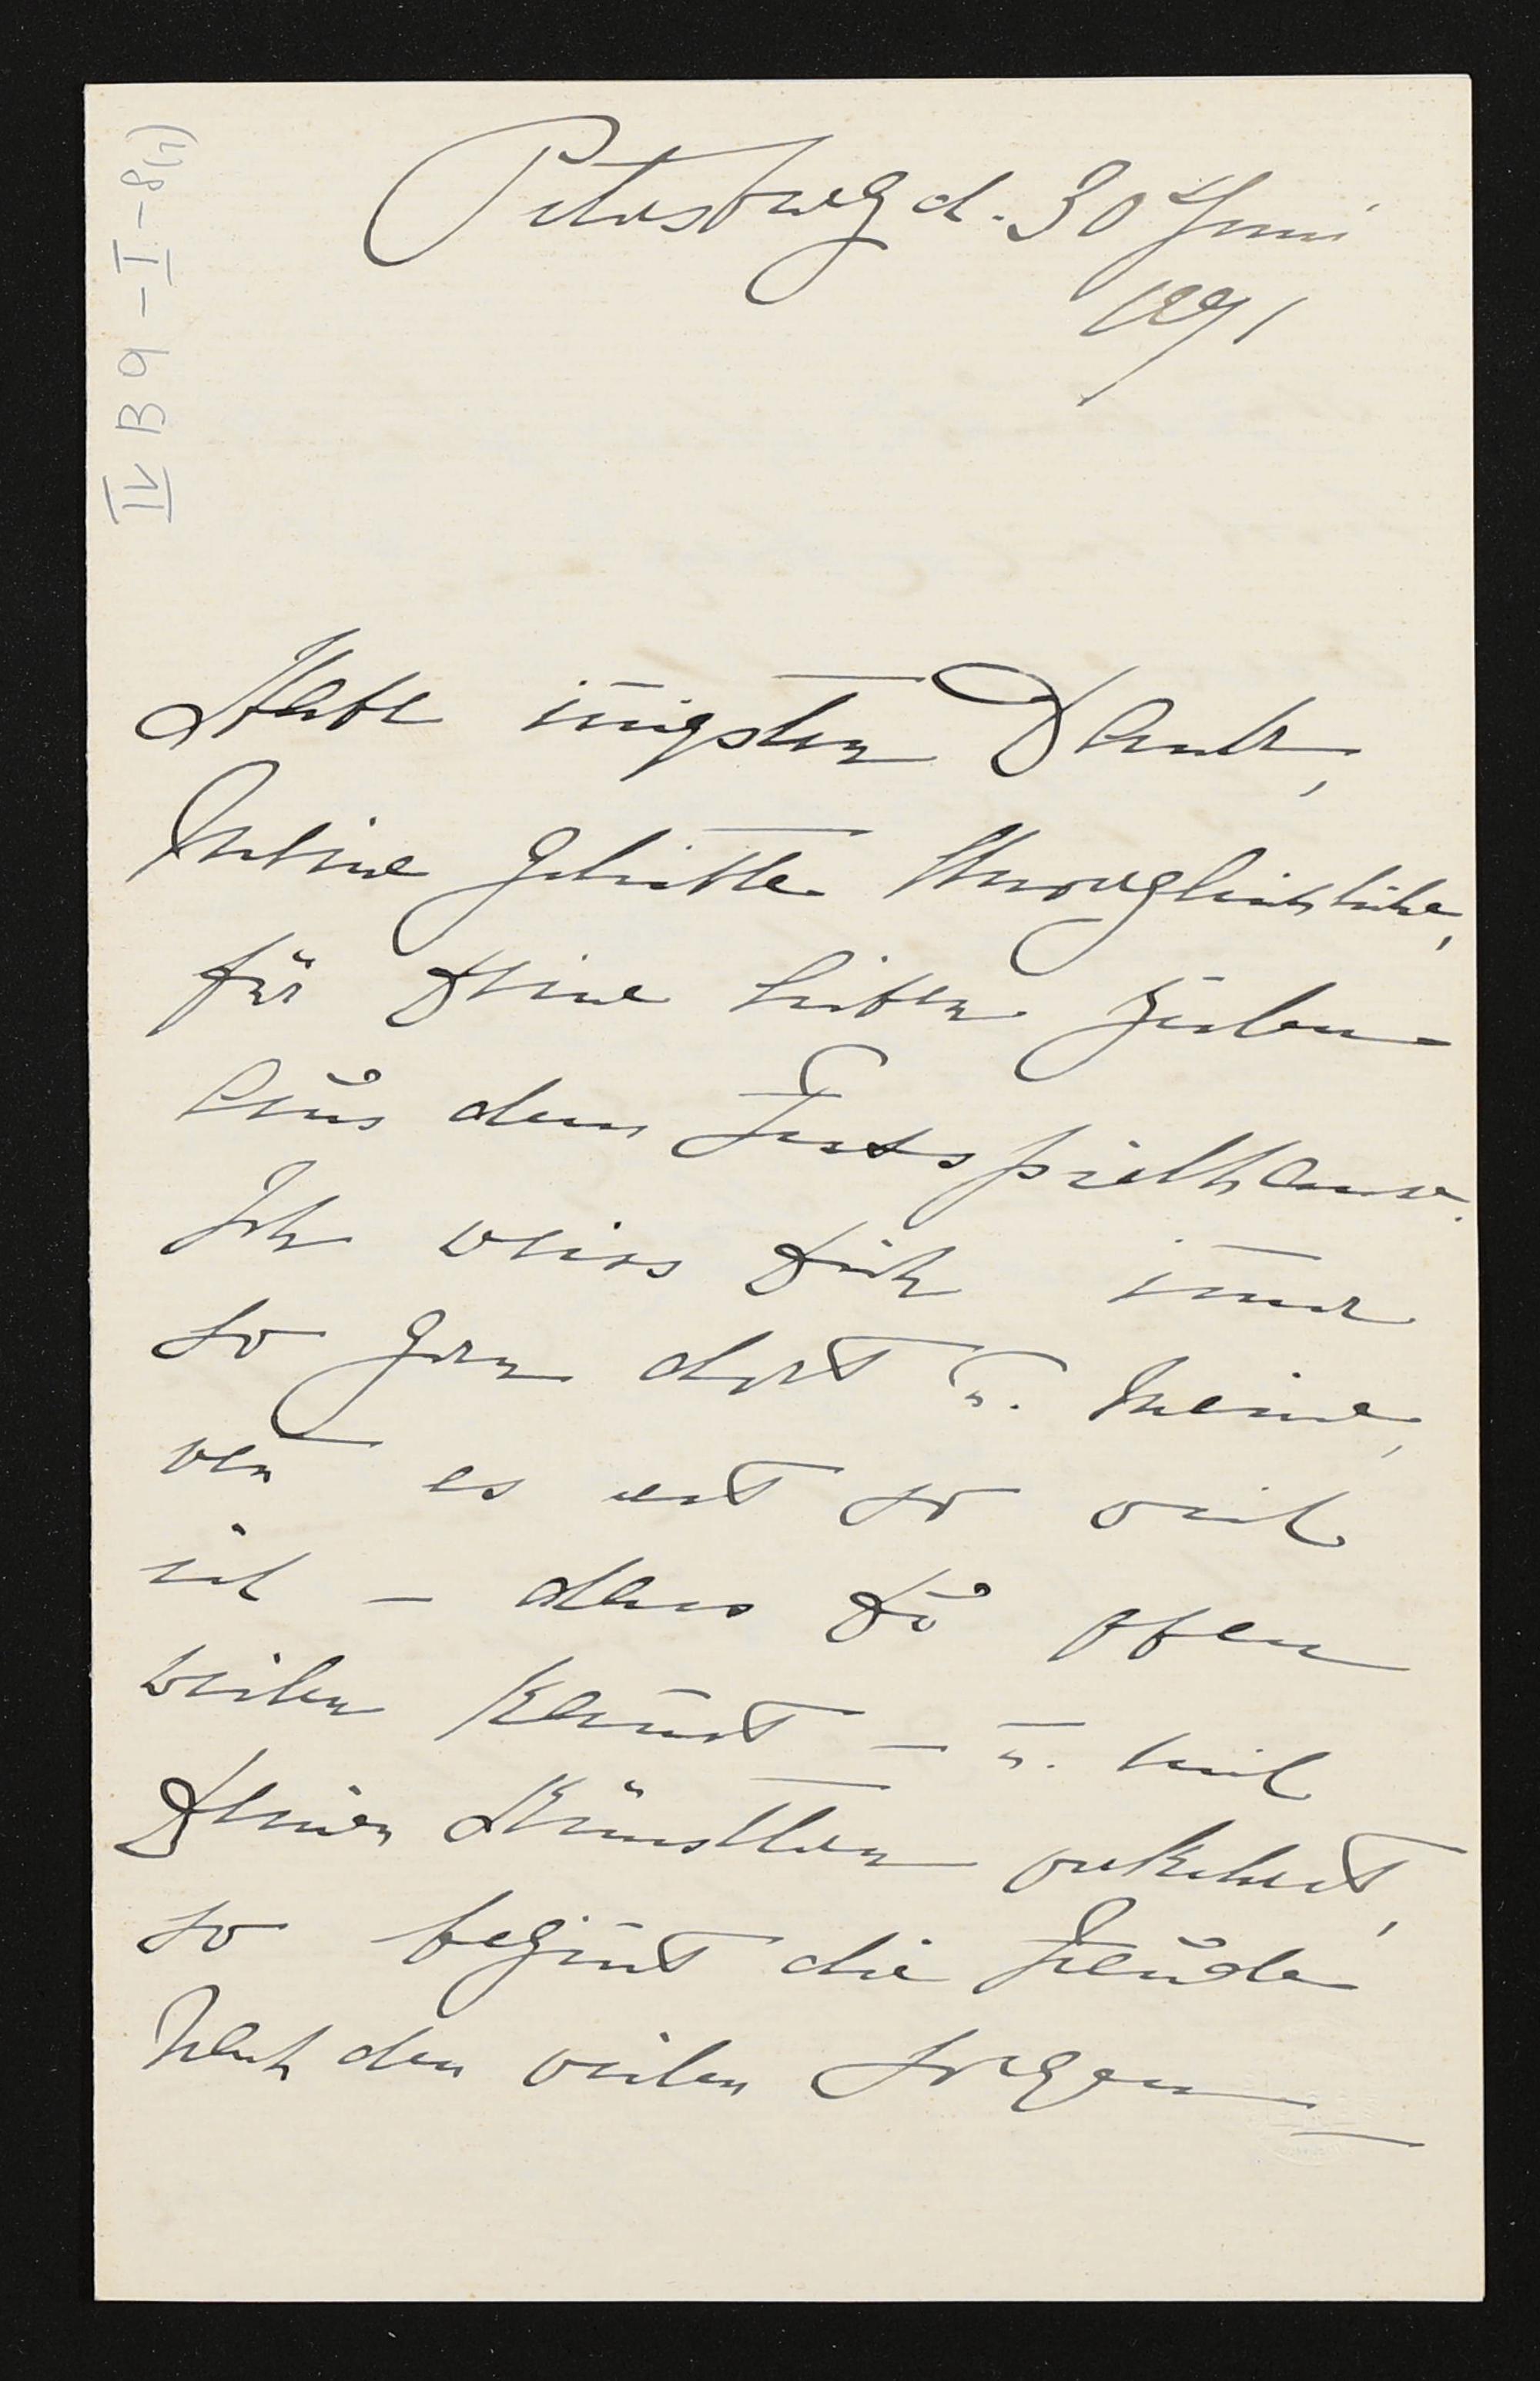 IV B 9 – I – 8(1)
Petersburg d. 30 Juni
1891
Habe iñigsten Dank,
Meine geliebte Unvergleichliche,
für Deine lieben Zeilen
aus dem Festspielhause.
Ich weiss Dich im̄er
so gern dort u. meine,
wen̄ es erst so weit
ist – dass Du oben
weilen kan̄st – u. mit
Deinen Künstlern verkehrst,
so begin̄t die Freude
nach den vielen Sorgen –